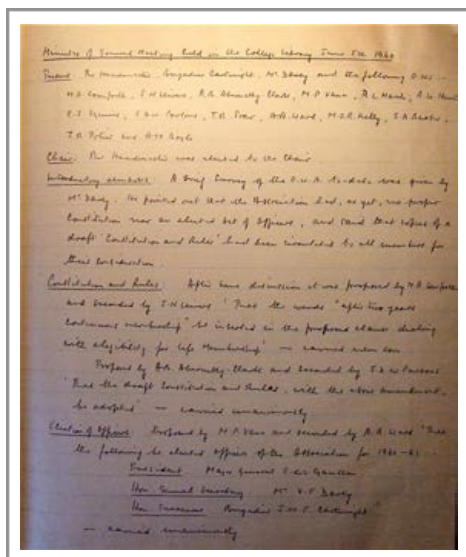 Minutes of General Meeting held in the College Library June 5th 1960
Present. The Headmaster, Brigadier Cartwright, Mr Davey and the following O.W.s :-
M.A. Cornforth, S.N. Lewis, R.A. Abernethy-Clark, M.P. Vann,
R.J. Squire, T.R. Poser, A.R. Ward, M.J.R. Kelly,
and
Chair: The Headmaster was elected to the Chair
Introductory remarks. A brief Survey of the O.W.A. to-date was given by
Mr Davey. He pointed out that the Association had, as yet, no proper
Constitution nor an elected set of Officers, and said that copies of a
draft 'Constitution and Rules' had been circulated to all members for
their consideration.
Constitution and Rules: After some discussion it was proposed by M.A. Cornforth
and seconded by S.N. Lewis 'That the words "after two years
continuous membership" be inserted in the proposed clause dealing
with eligibility for Life Membership' — carried
Proposed by Abernethy-Clark and seconded by Parsons
'That the draft Constitution and Rules, with the above amendment,
be adopted' — carried unanimously
Election of Officers: Proposed by M.P. Vann and seconded by A.R. Ward "That
the following be elected officers of the Association for 1960-61 :-
President Major General
Hon. General Secretary Mr Davey
Brigadier Cartwright"
— carried unanimously